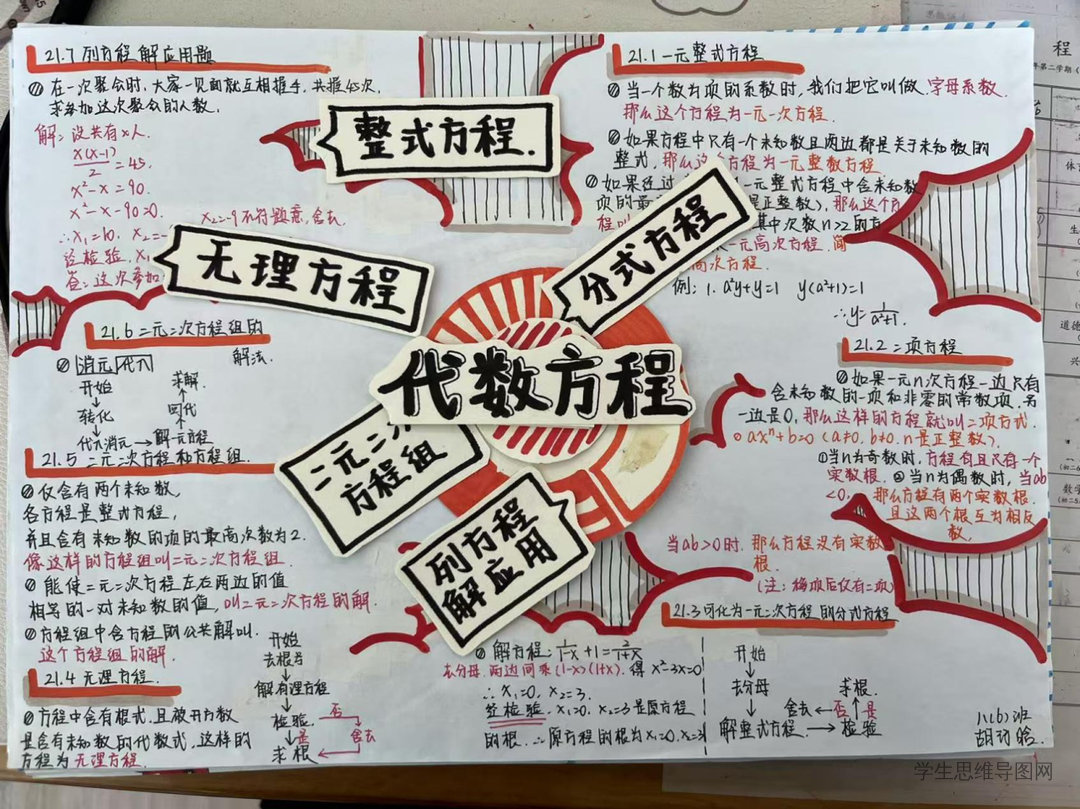 21.7 列方程解应用题
① 在一次聚会时，大家一见面就互相握手，共握45次，
求参加这次聚会的人数.
解：设共有x人.
x(x-1)/2=45.
x²-x=90.
x²-x-90=0.
∴x₁=10. x₂=-
x₂=-9不符题意,舍去.
经检验，x₁
答：这次参加
21.6 二元二次方程组的
解法.
① 消元 代入
开始
转化
代入消元→解一元方程
回代
求解
21.5 二元二次方程和方程组.
① 仅含有两个未知数，
各方程是整式方程，
并且含有未知数的项的最高次数为2.
像这样的方程组叫二元二次方程组.
② 能使二元二次方程左右两边的值
相等的一对未知数的值，叫二元二次方程的解.
③ 方程组中含方程的公共解叫.
这个方程组的解.
21.4 无理方程.
① 方程中含有根式，且被开方数
是含有未知数的代数式，这样的
方程为无理方程.
开始
去根号
解有理方程
检验. 否
是 舍去
求根
整式方程.
无理方程
分式方程
代数方程
二元二次
方程组
列方程
解应用
21.1 一元整式方程
① 当一个数为项的系数时，我们把它叫做.字母系数.
那么这个方程为一元一次方程.
② 如果方程中只有一个未知数且两边都是关于未知数的
整式，那么这个方程为一元整数方程
③ 如果经过 一元整式方程中含未知数
项的最 是正整数)，那么这个
程叫 其中次数n>2的方
一元高次方程，简
高次方程.
例：1. a²y+y=1 y(a²+1)=1
∴y=1/(a²+1).
21.2 二项方程
① 如果一元n次方程一边只有
含未知数的一项和非零的常数项.另
一边是0，那么这样的方程就叫二项方式.
axⁿ+b=0 (a≠0.b≠0.n是正整数).
①当n为奇数时，方程有且只有一个
实数根. ②当n为偶数时，当ab
<0, 那么方程有两个实数根.
且这两个根互为相反
数.
当ab>0时. 那么方程没有实数
根.
(注：移项后仅有二项)
21.3 可化为一元二次方程的分式方程
开始
去分母
解整式方程→检验
求根.
舍去←否 是
① 解方程：1/(1-x)+1=2/(1+x)
去分母.两边同乘(1-x)(1+x). 得x²-3x=0
∴x₁=0. x₂=3.
经检验，x₁=0. x₂=3是原方程
的根. ∴原方程的根为x₁=0.x₂=3
八(6)班
学生思维导图网
程